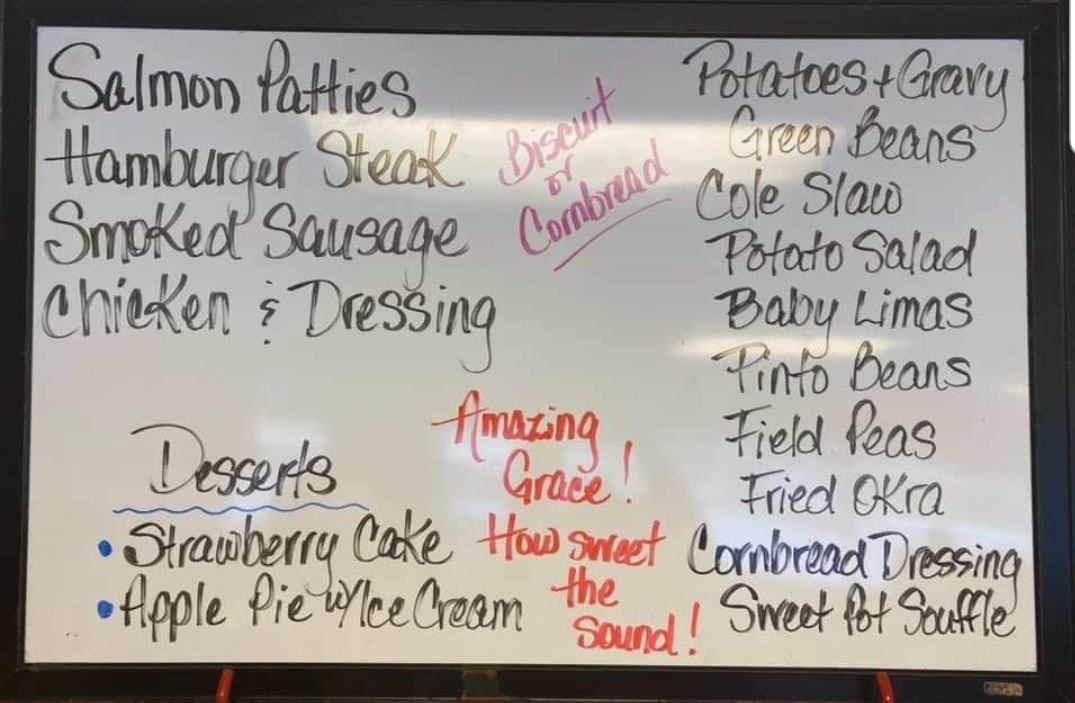 Salmon Patties
Hamburger Steak
Smoked Sausage
Chicken & Dressing
Biscuit
or
Cornbread
Potatoes + Gravy
Green Beans
Cole Slaw
Potato Salad
Baby Limas
Pinto Beans
Field Peas
Fried Okra
Cornbread Dressing
Sweet Pot Souffle
Desserts
• Strawberry Cake
• Apple Pie w/Ice Cream
Amazing
Grace!
How sweet
the
sound!